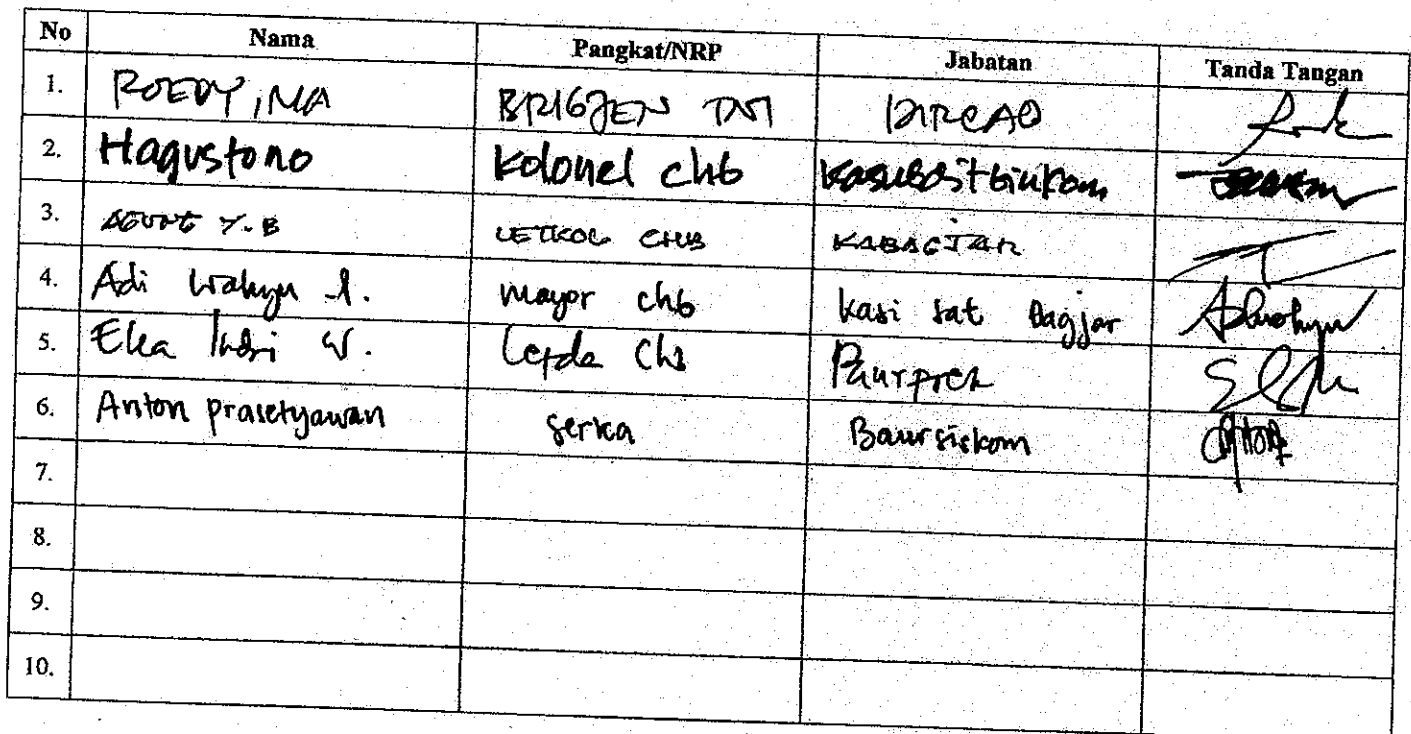 No Nama Pangkat/NRP Jabatan Tanda Tangan
1. ROEDY, MA BRIGJEN TNI DIRCAB
2. Hagustono Kolonel chb Kasubditbinkom
3. AGUNG Y.B LETKOL CHB KABAGJAR
4. Adi Wahyu mayor chb Kasi Sat Bagjar
5. Eka Indri W. Letda Chb Paurprek
6. Anton prasetyawan serka Baursiskom
7.
8.
9.
10.